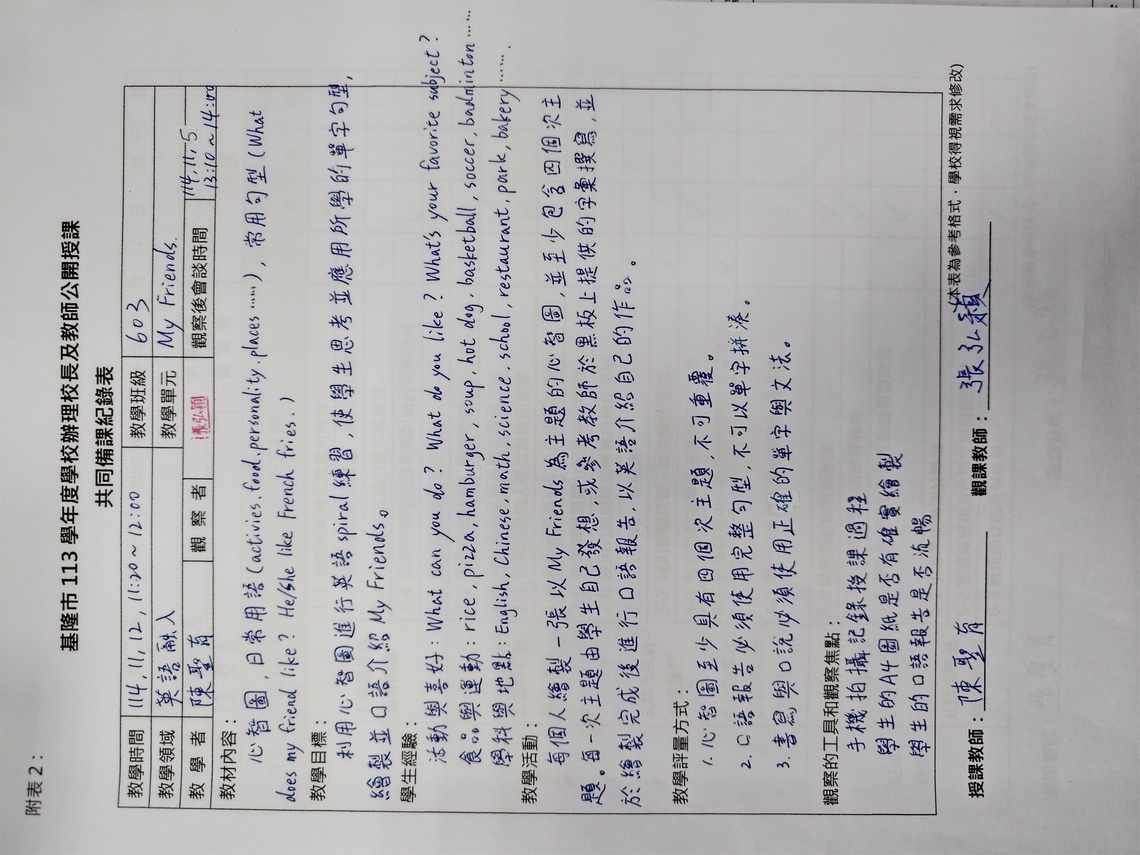 附表 2：
基隆市 113 學年度學校辦理校長及教師公開授課
共同備課紀錄表
教學時間 114, 11, 12, 11:20～12:00 教學班級 603
教學領域 英語融入 教學單元 My Friends.
教 學 者 陳聖育 觀 察 者 張弘穎 觀察後會談時間 114, 11, 5 13:10～14:00
教材內容：
心智圖，日常用語(activies.food.personality.places……)，常用句型(What
does my friend like? He/She like French fries.)
教學目標：
利用心智圖進行英語spiral練習，使學生思考並應用所學的單字句型，
繪製並口語介紹My Friends。
學生經驗：
活動與喜好：What can you do? What do you like? What's your favorite subject?
食品與運動：rice, pizza, hamburger, soup, hot dog, basketball, soccer, badminton……
學科與地點：English, Chinese, math, science, school, restaurant, park, bakery…….
教學活動：
每個人繪製一張以My Friends為主題的心智圖，並至少包含四個次主
題。每一次主題由學生自己發想，或參考教師於黑板上提供的字彙撰寫，並
於繪製完成後進行口語報告，以英語介紹自己的作品。
教學評量方式：
1. 心智圖至少具有四個次主題，不可重覆。
2. 口語報告必須使用完整句型，不可以單字拼湊。
3. 書寫與口說必須使用正確的單字與文法。
觀察的工具和觀察焦點：
手機拍攝記錄授課過程
學生的A4圖紙是否有確實繪製
學生的口語報告是否流暢
(本表為參考格式，學校得視需求修改)
授課教師：陳聖育 觀課教師：張弘穎